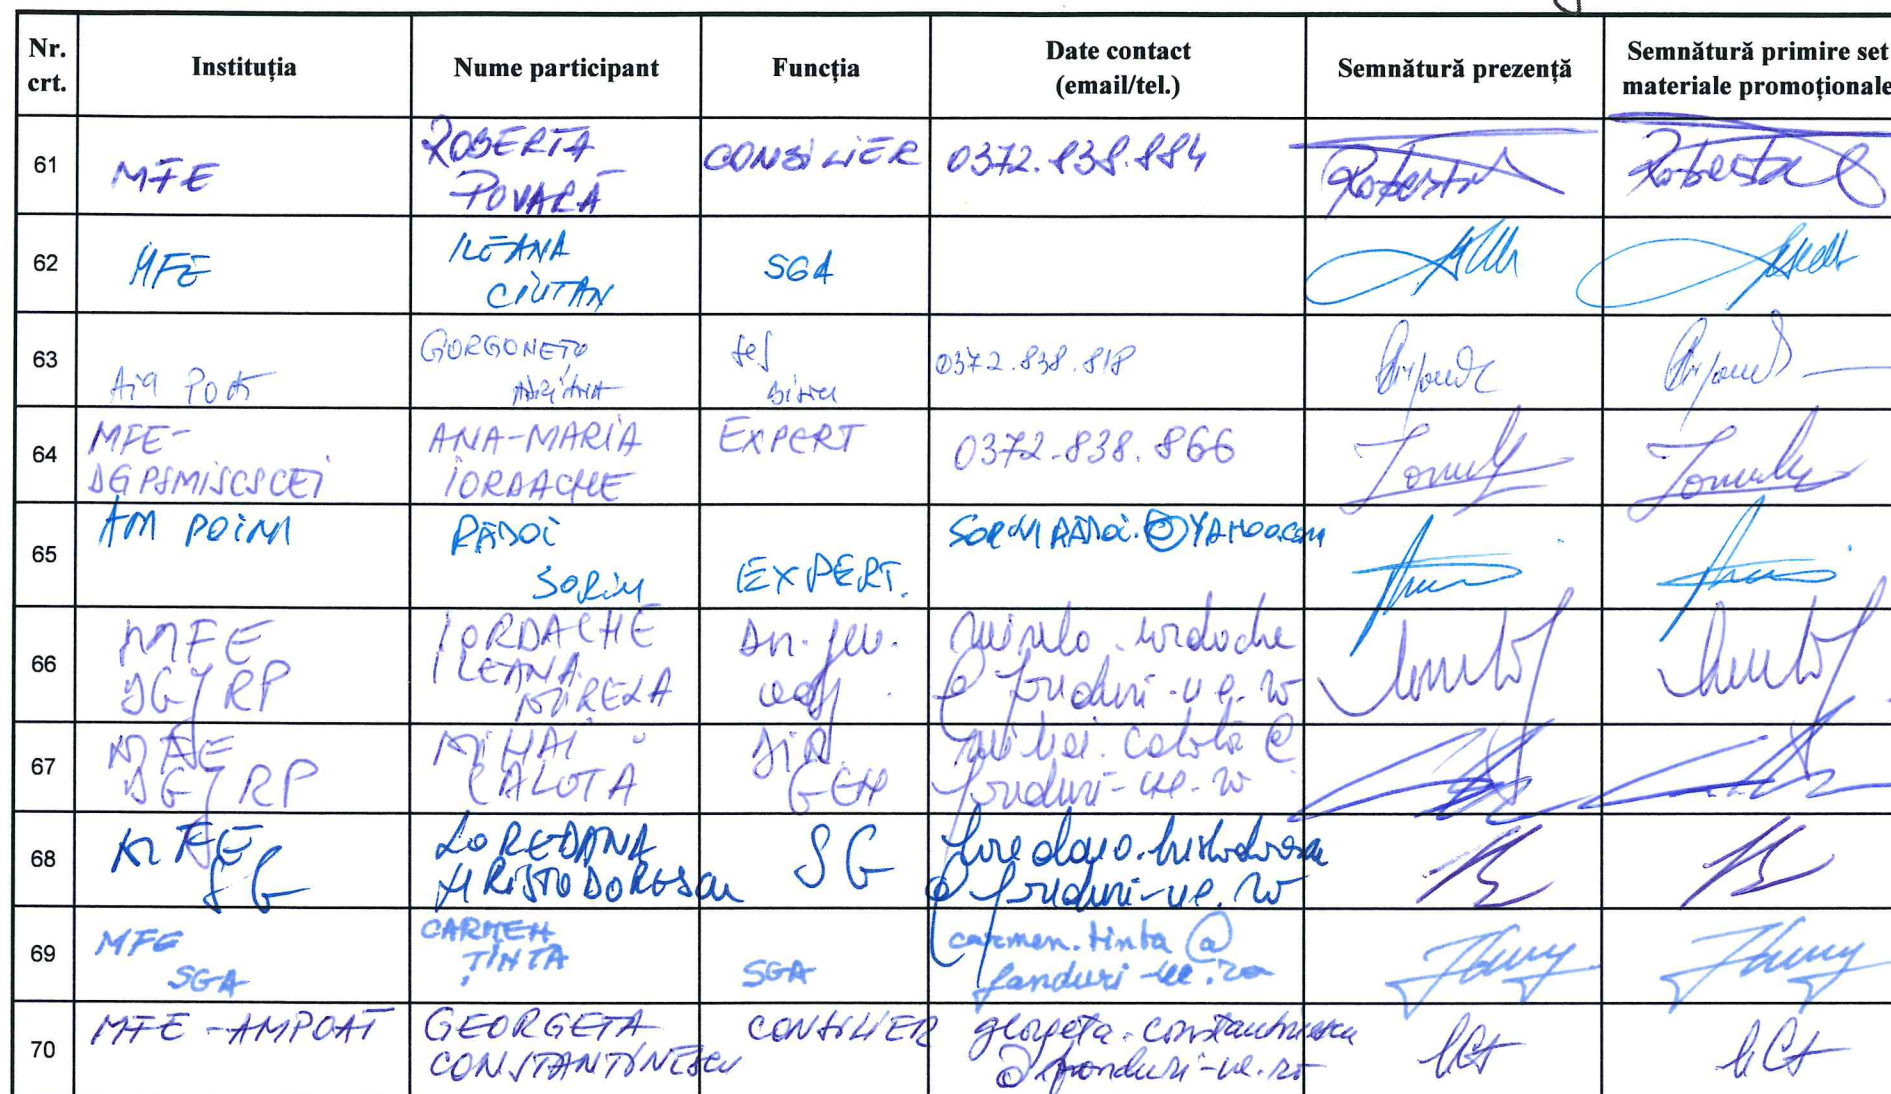 Nr. crt. Instituția Nume participant Funcția Date contact (email/tel.) Semnătură prezență Semnătură primire set materiale promoționale
61 MFE ROBERTA POVARĂ CONSILIER 0372.838.884 Roberta Roberta
62 MFE ILEANA CIUTAN SGA
63 GORGONEȚU ADRIANA șef 0372.838.818
64 MFE- ANA-MARIA IORDACHE EXPERT 0372.838.866
65 AM POIM RĂDOI SORIN EXPERT. SORINRĂDOI.@YAHOO.COM
66 MFE DGJRP IORDACHE ILEANA MIRELA mirela.iordache @fonduri-ue.ro
67 MFE DGJRP MIHAI CALOTĂ DIR. GEN mihai.calota@ fonduri-ue.ro
68 MFE SG LOREDANA HRISTODORESCU SG @fonduri-ue.ro
69 MFE SGA CARMEN ȚINTA SGA carmen.tinta@ fonduri-ue.ro
70 MFE-AMPOAT GEORGETA CONSTANTINESCU CONSILIER georgeta.constantinescu @fonduri-ue.ro